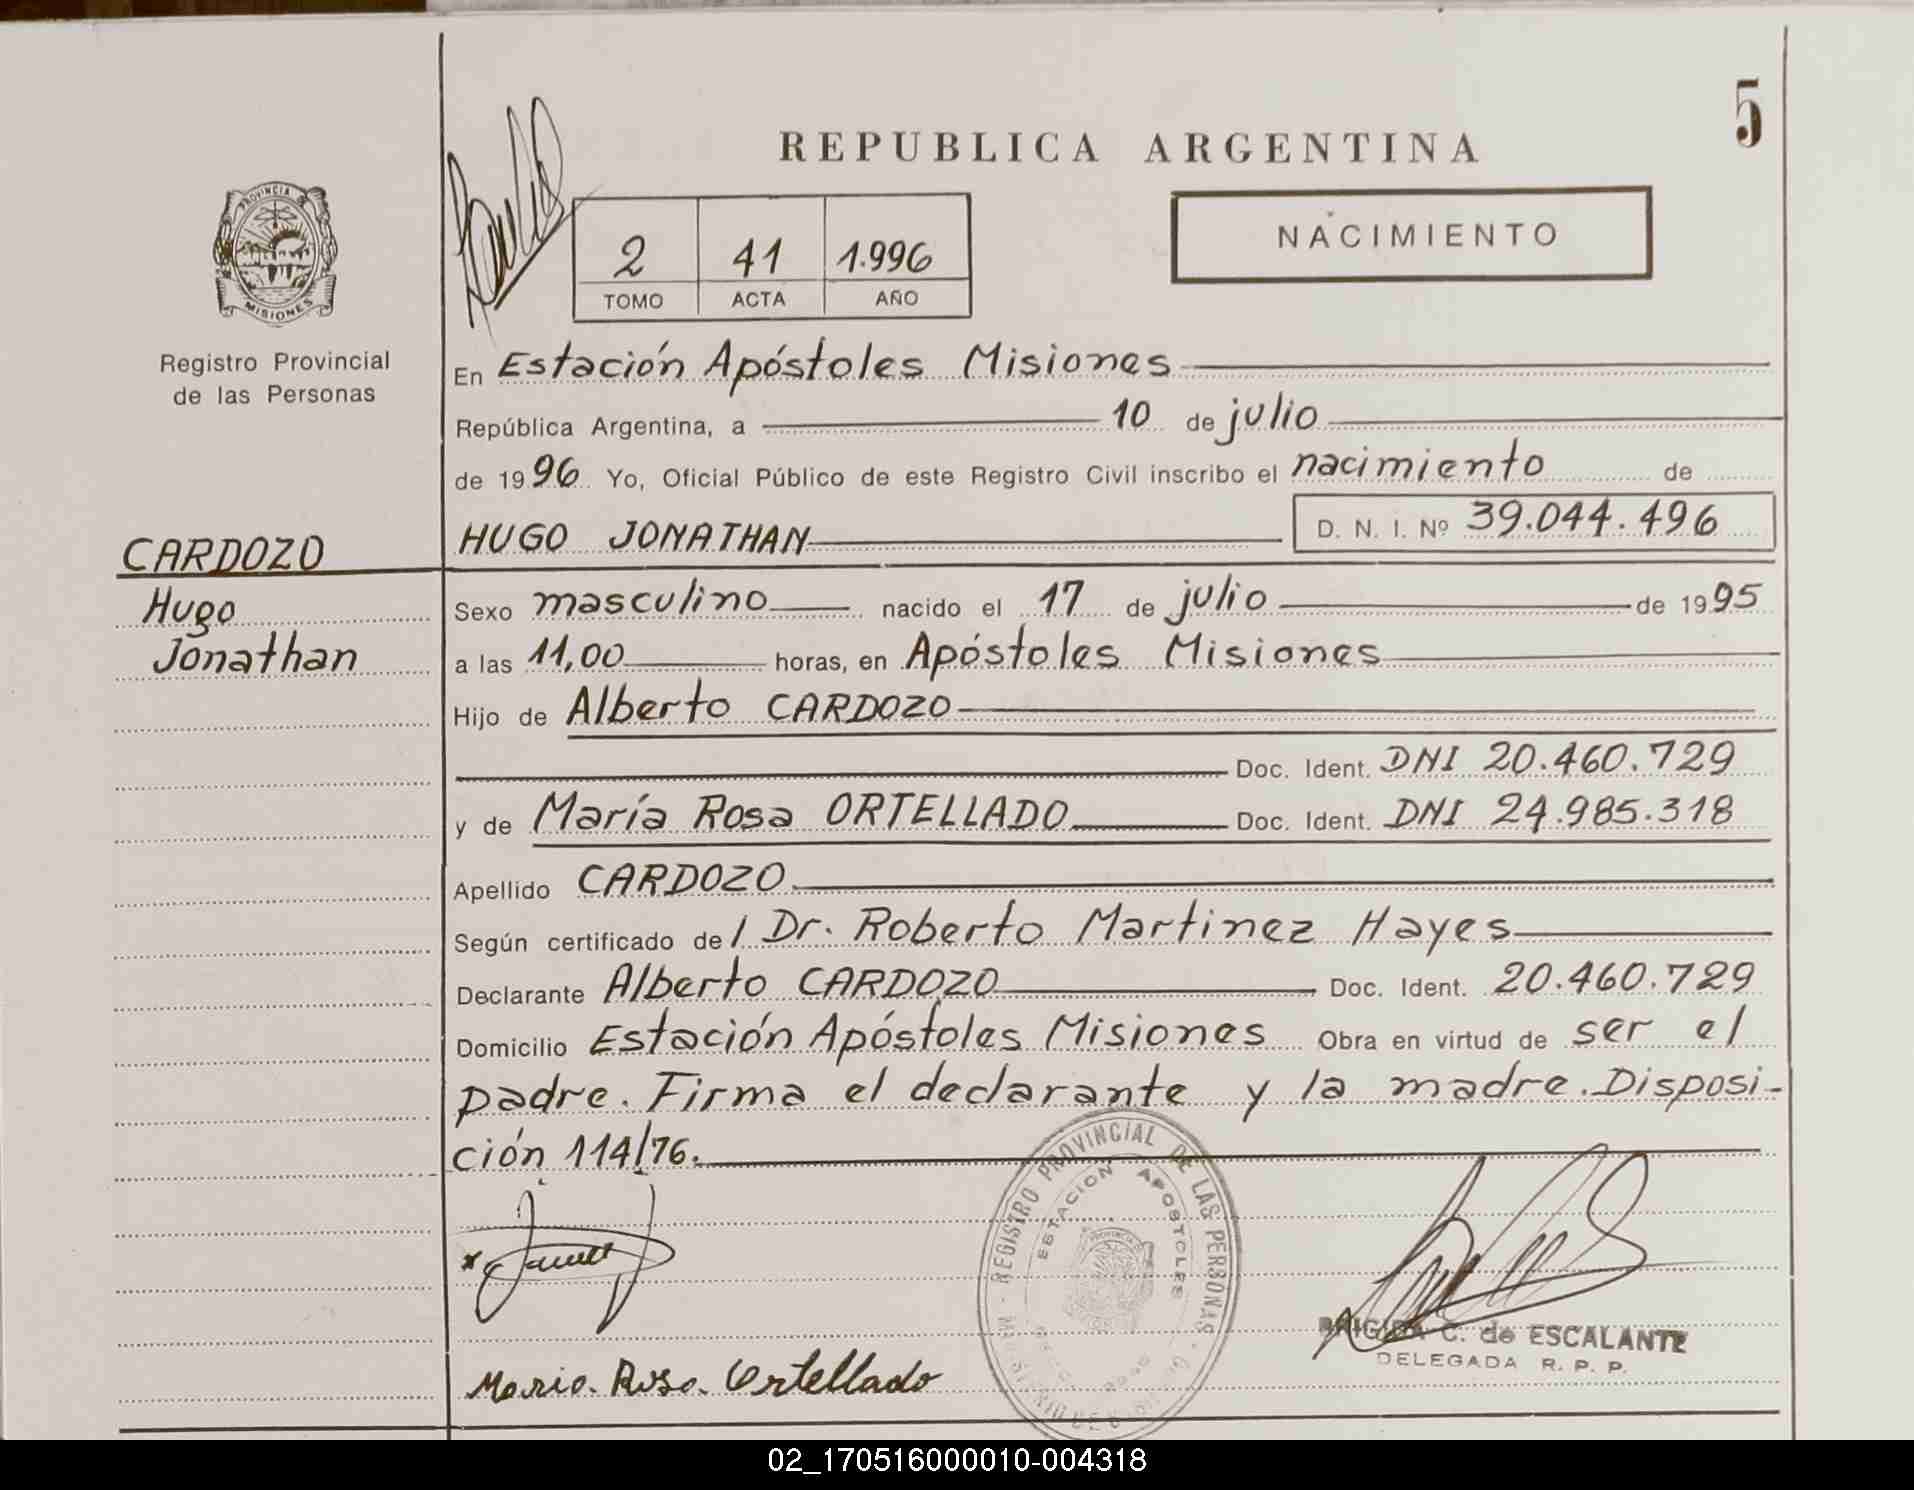 REPUBLICA ARGENTINA
5
PROVINCIA DE
MISIONES
Registro Provincial
de las Personas
2 41 1.996
TOMO ACTA AÑO
NACIMIENTO
En Estación Apóstoles Misiones
República Argentina, a 10 de julio
de 1996 Yo, Oficial Público de este Registro Civil inscribo el nacimiento de
HUGO JONATHAN D. N. I. Nº 39.044.496
CARDOZO
Hugo
Jonathan
Sexo masculino nacido el 17 de julio de 1995
a las 11,00 horas, en Apóstoles Misiones
Hijo de Alberto CARDOZO
Doc. Ident. DNI 20.460.729
y de María Rosa ORTELLADO Doc. Ident. DNI 24.985.318
Apellido CARDOZO
Según certificado del Dr. Roberto Martinez Hayes
Declarante Alberto CARDOZO Doc. Ident. 20.460.729
Domicilio Estación Apóstoles Misiones Obra en virtud de ser el
padre. Firma el declarante y la madre. Disposi-
ción 114/76.
REGISTRO PROVINCIAL DE LAS PERSONAS
ESTACION APOSTOLES
BRIGIDA C. de ESCALANTE
DELEGADA R. P. P.
Maria. Rosa. Ortellado
02_170516000010-004318